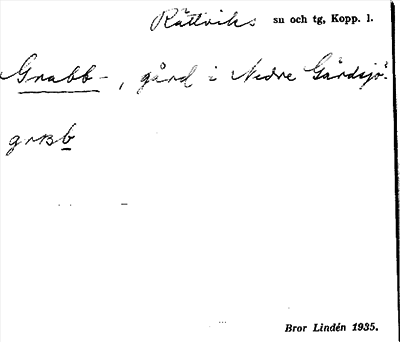 Rättviks su och tg, Kopp. l.
Grabb-, gård i Nedre Gärdsjö.
Bror Lindén 1935.